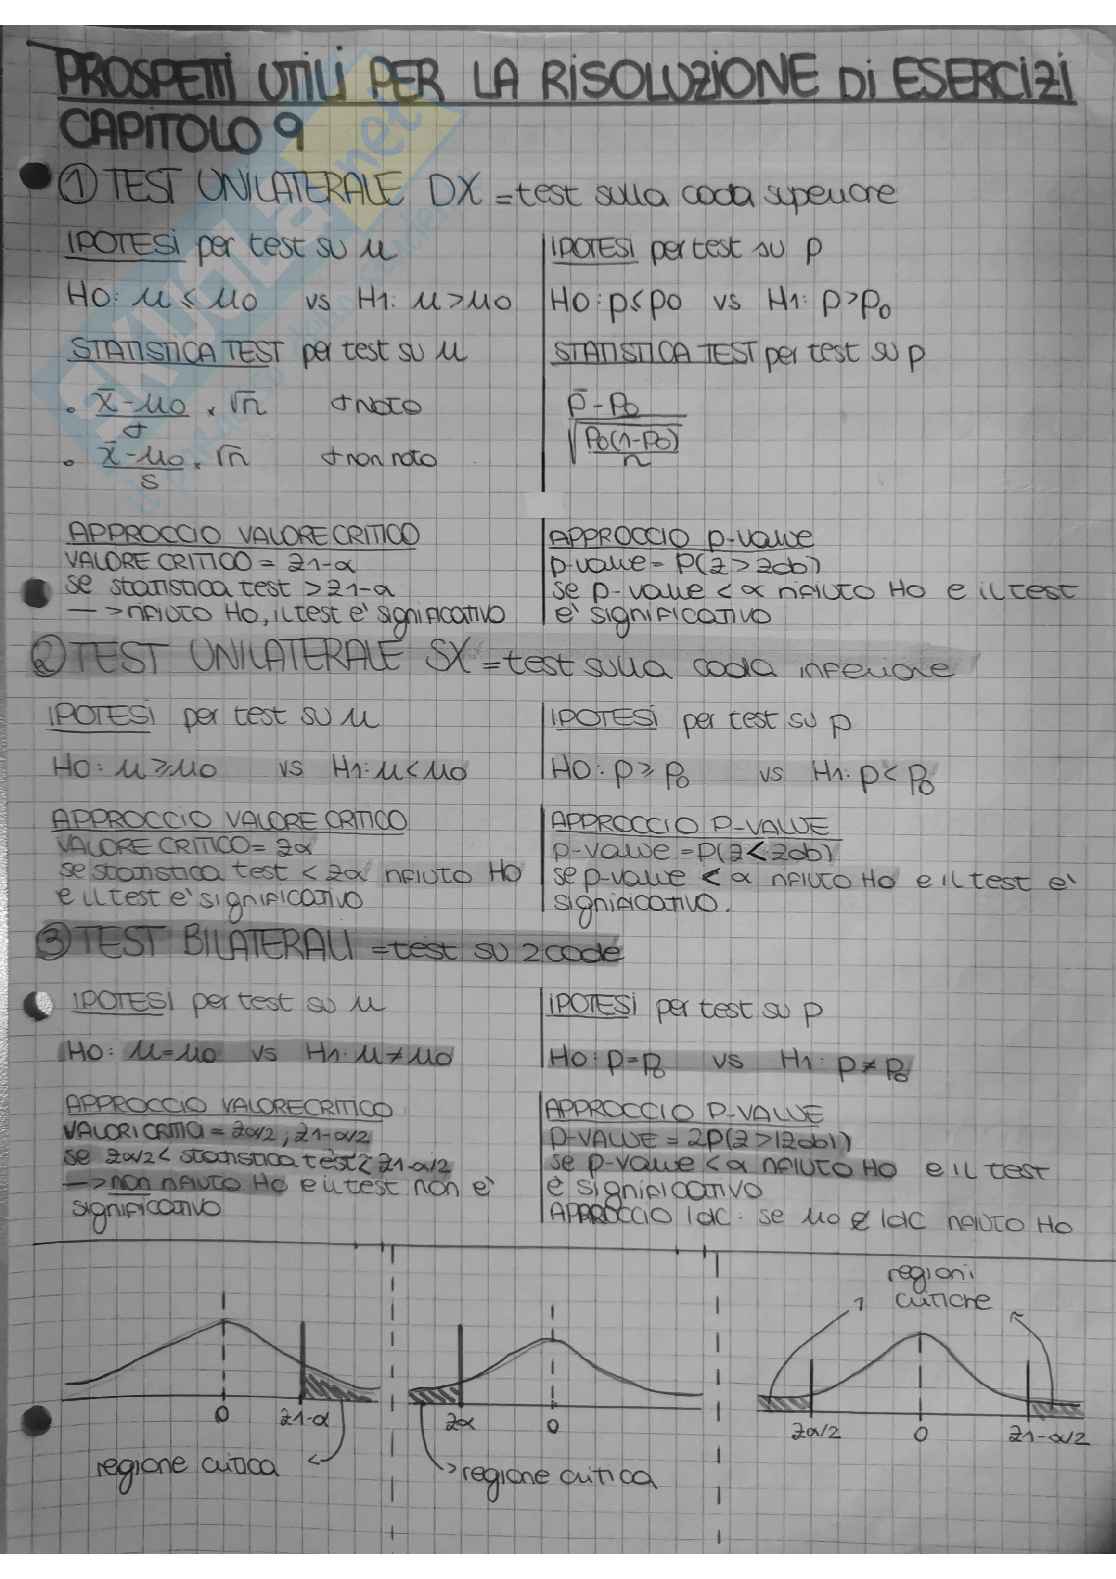 PROSPETTI UTILI PER LA RISOLUZIONE Di ESERCIZI
CAPITOLO 9
① TEST UNILATERALE DX = test sulla coda superiore
IPOTESI per test su μ
H0: μ ≤ μ0 vs H1: μ > μ0
STATISTICA TEST per test su μ
• x̄ - μ0 / σ × √n σ NOTO
• x̄ - μ0 / s × √n σ non noto
IPOTESI per test su p
H0: p ≤ p0 vs H1: p > p0
STATISTICA TEST per test su p
p̄ - p0
√ p0(1-p0) / n
APPROCCIO VALORE CRITICO
VALORE CRITICO = z1-α
se statistica test > z1-α
—> rifiuto H0, il test e' significativo
APPROCCIO p-value
p-value = P(z > zob)
se p-value < α rifiuto H0 e il test
e' significativo
② TEST UNILATERALE SX = test sulla coda inferiore
IPOTESI per test su μ
H0: μ ≥ μ0 vs H1: μ < μ0
IPOTESI per test su p
H0: p ≥ p0 vs H1: p < p0
APPROCCIO VALORE CRITICO
VALORE CRITICO = zα
se statistica test < zα rifiuto H0
e il test e' significativo
APPROCCIO P-VALUE
p-value = P(z < zob)
se p-value < α rifiuto H0 e il test e'
significativo.
③ TEST BILATERALI = test su 2 code
IPOTESI per test su μ
H0: μ = μ0 vs H1: μ ≠ μ0
IPOTESI per test su p
H0: p = p0 vs H1: p ≠ p0
APPROCCIO VALORE CRITICO
VALORI CRITICI = zα/2 ; z1-α/2
se zα/2 < statistica test < z1-α/2
—> non rifiuto H0 e il test non e'
significativo
APPROCCIO P-VALUE
P-VALUE = 2P(z > |zob|)
se p-value < α rifiuto H0 e il test
e' significativo
APPROCCIO IdC: se μ0 ∉ IdC rifiuto H0
0 z1-α
regione critica
zα 0
regione critica
regioni
critiche
zα/2 0 z1-α/2